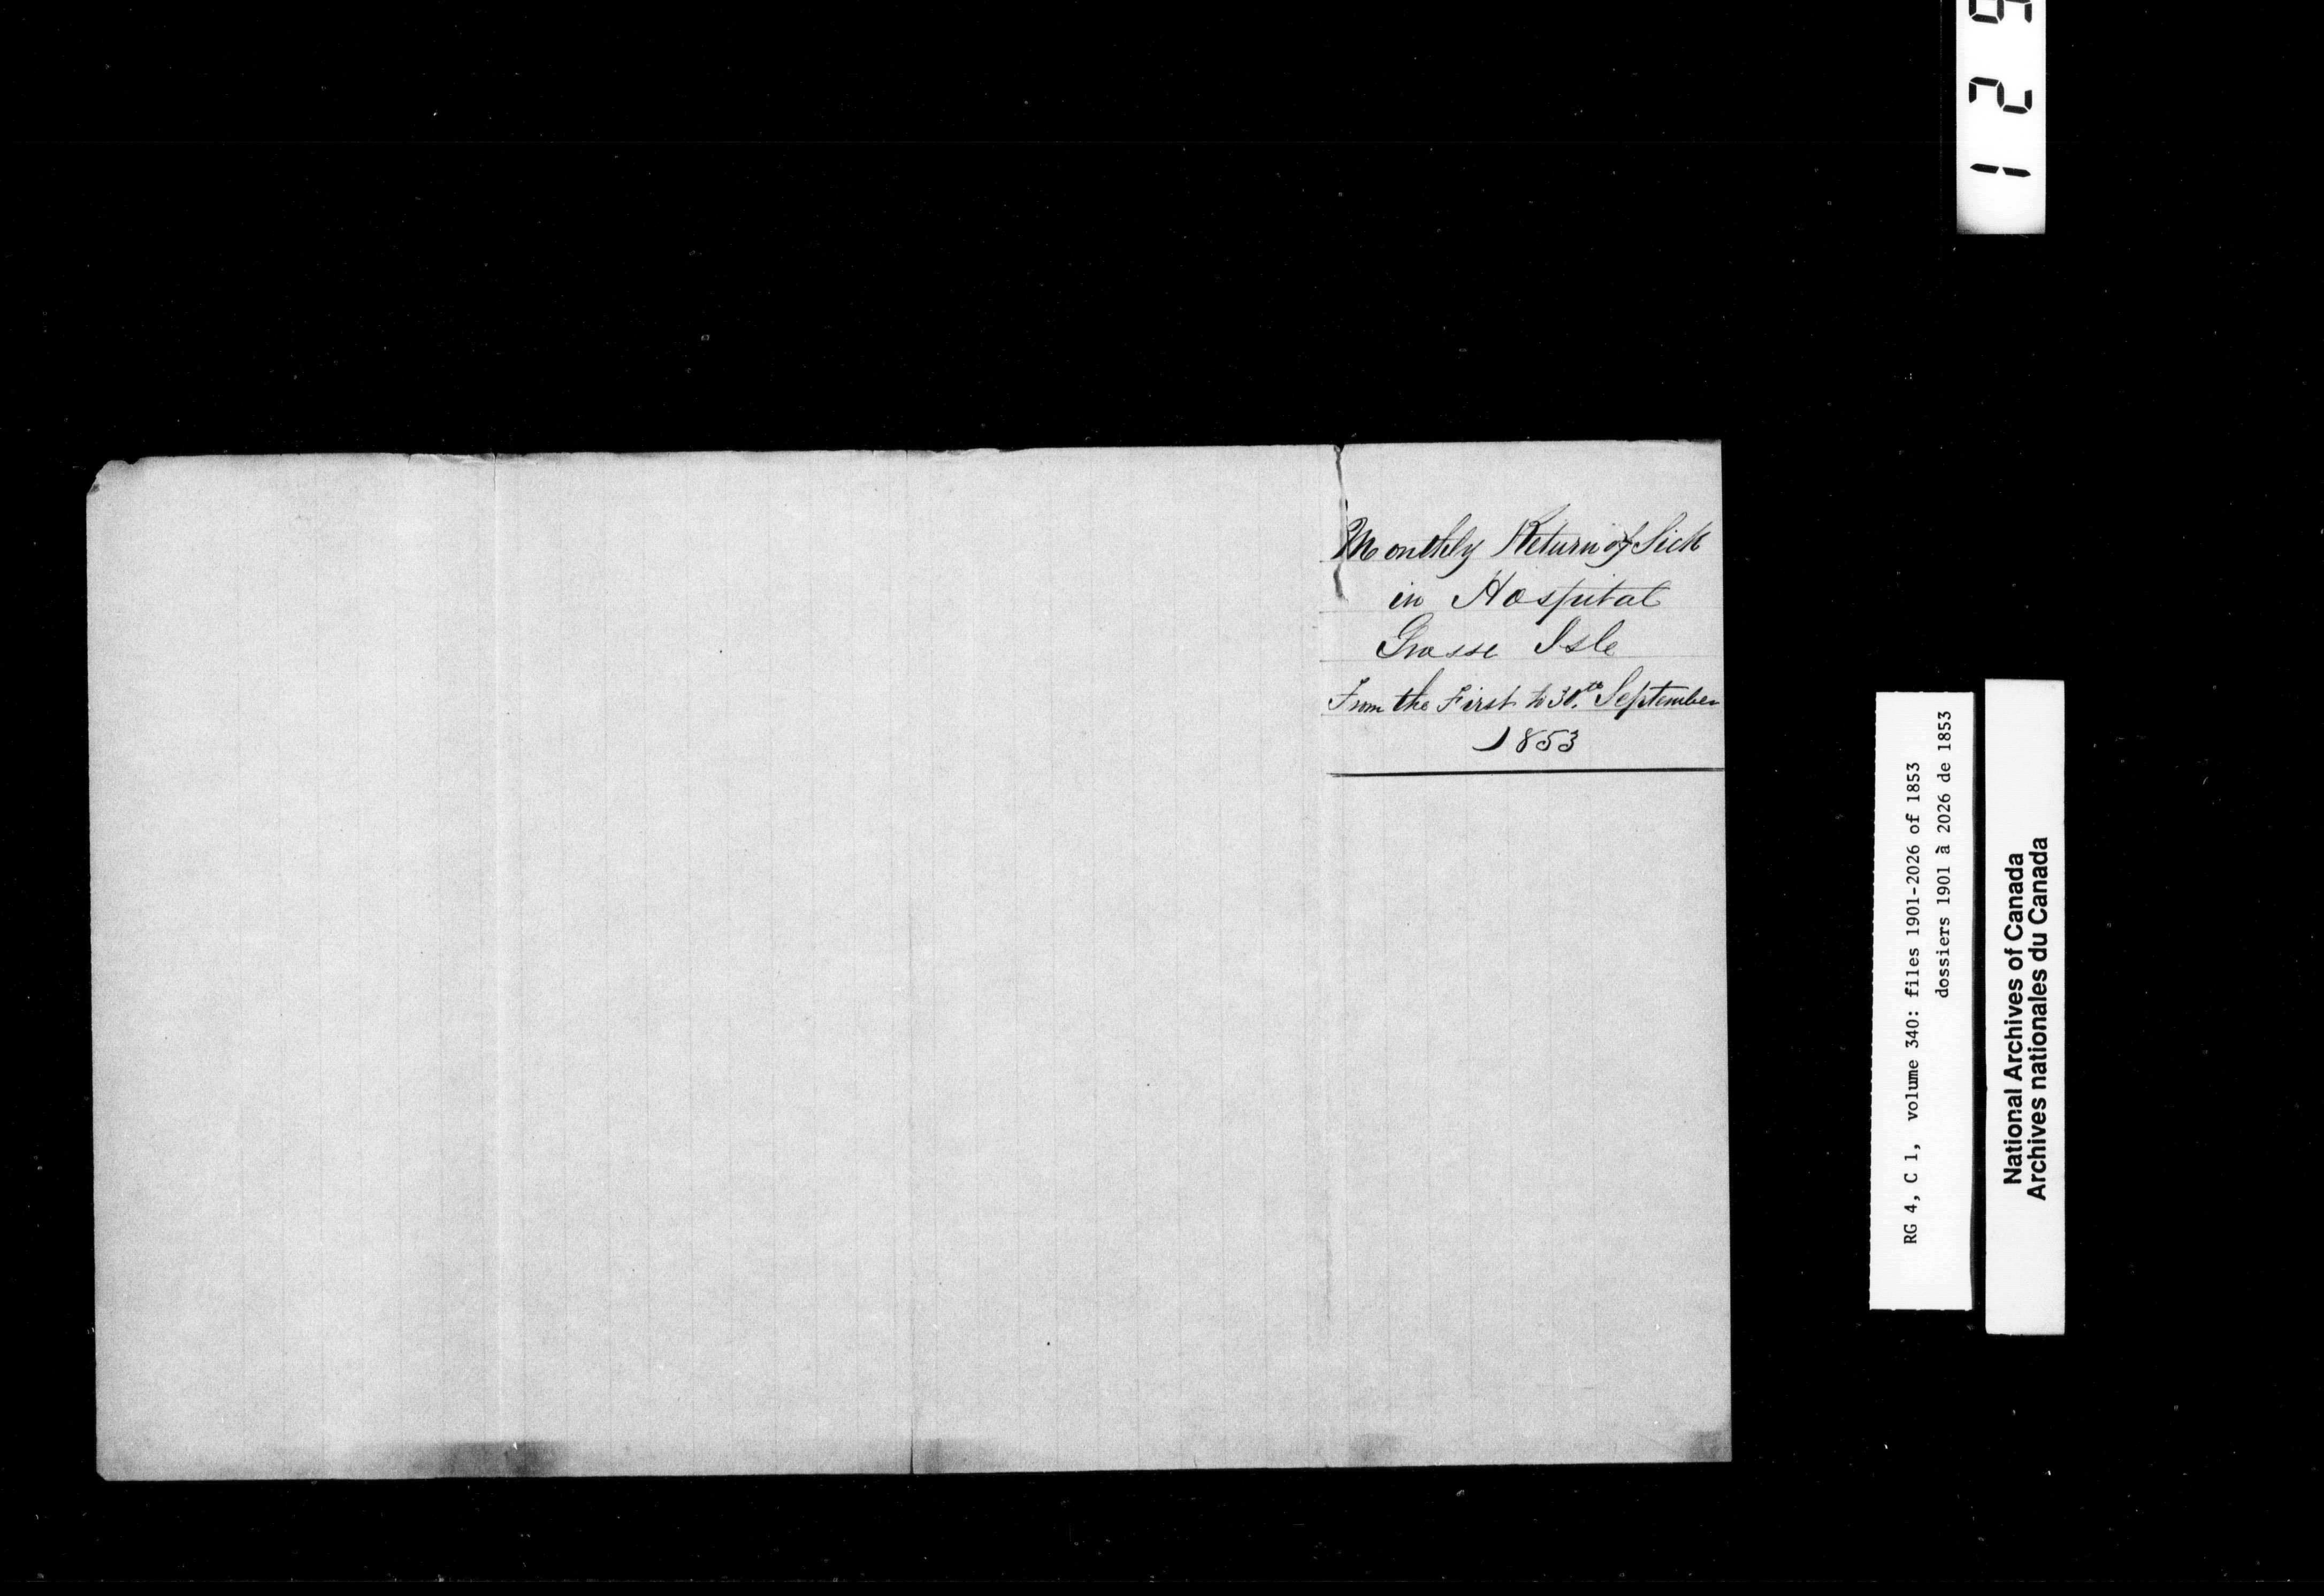 Monthly Return of Sick
in Hospital
Grosse Isle
From the First to 30.th September
1853
RG 4, C 1, volume 340: files 1901-2026 of 1853
dossiers 1901 à 2026 de 1853
National Archives of Canada
Archives nationales du Canada